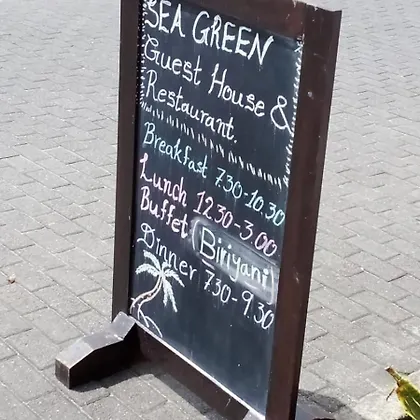 SEA GREEN
Guest House &
Restaurant.
Breakfast 7.30-10.30
Lunch 12.30-3.00
Buffet (Biriyani)
Dinner 7.30-9.30